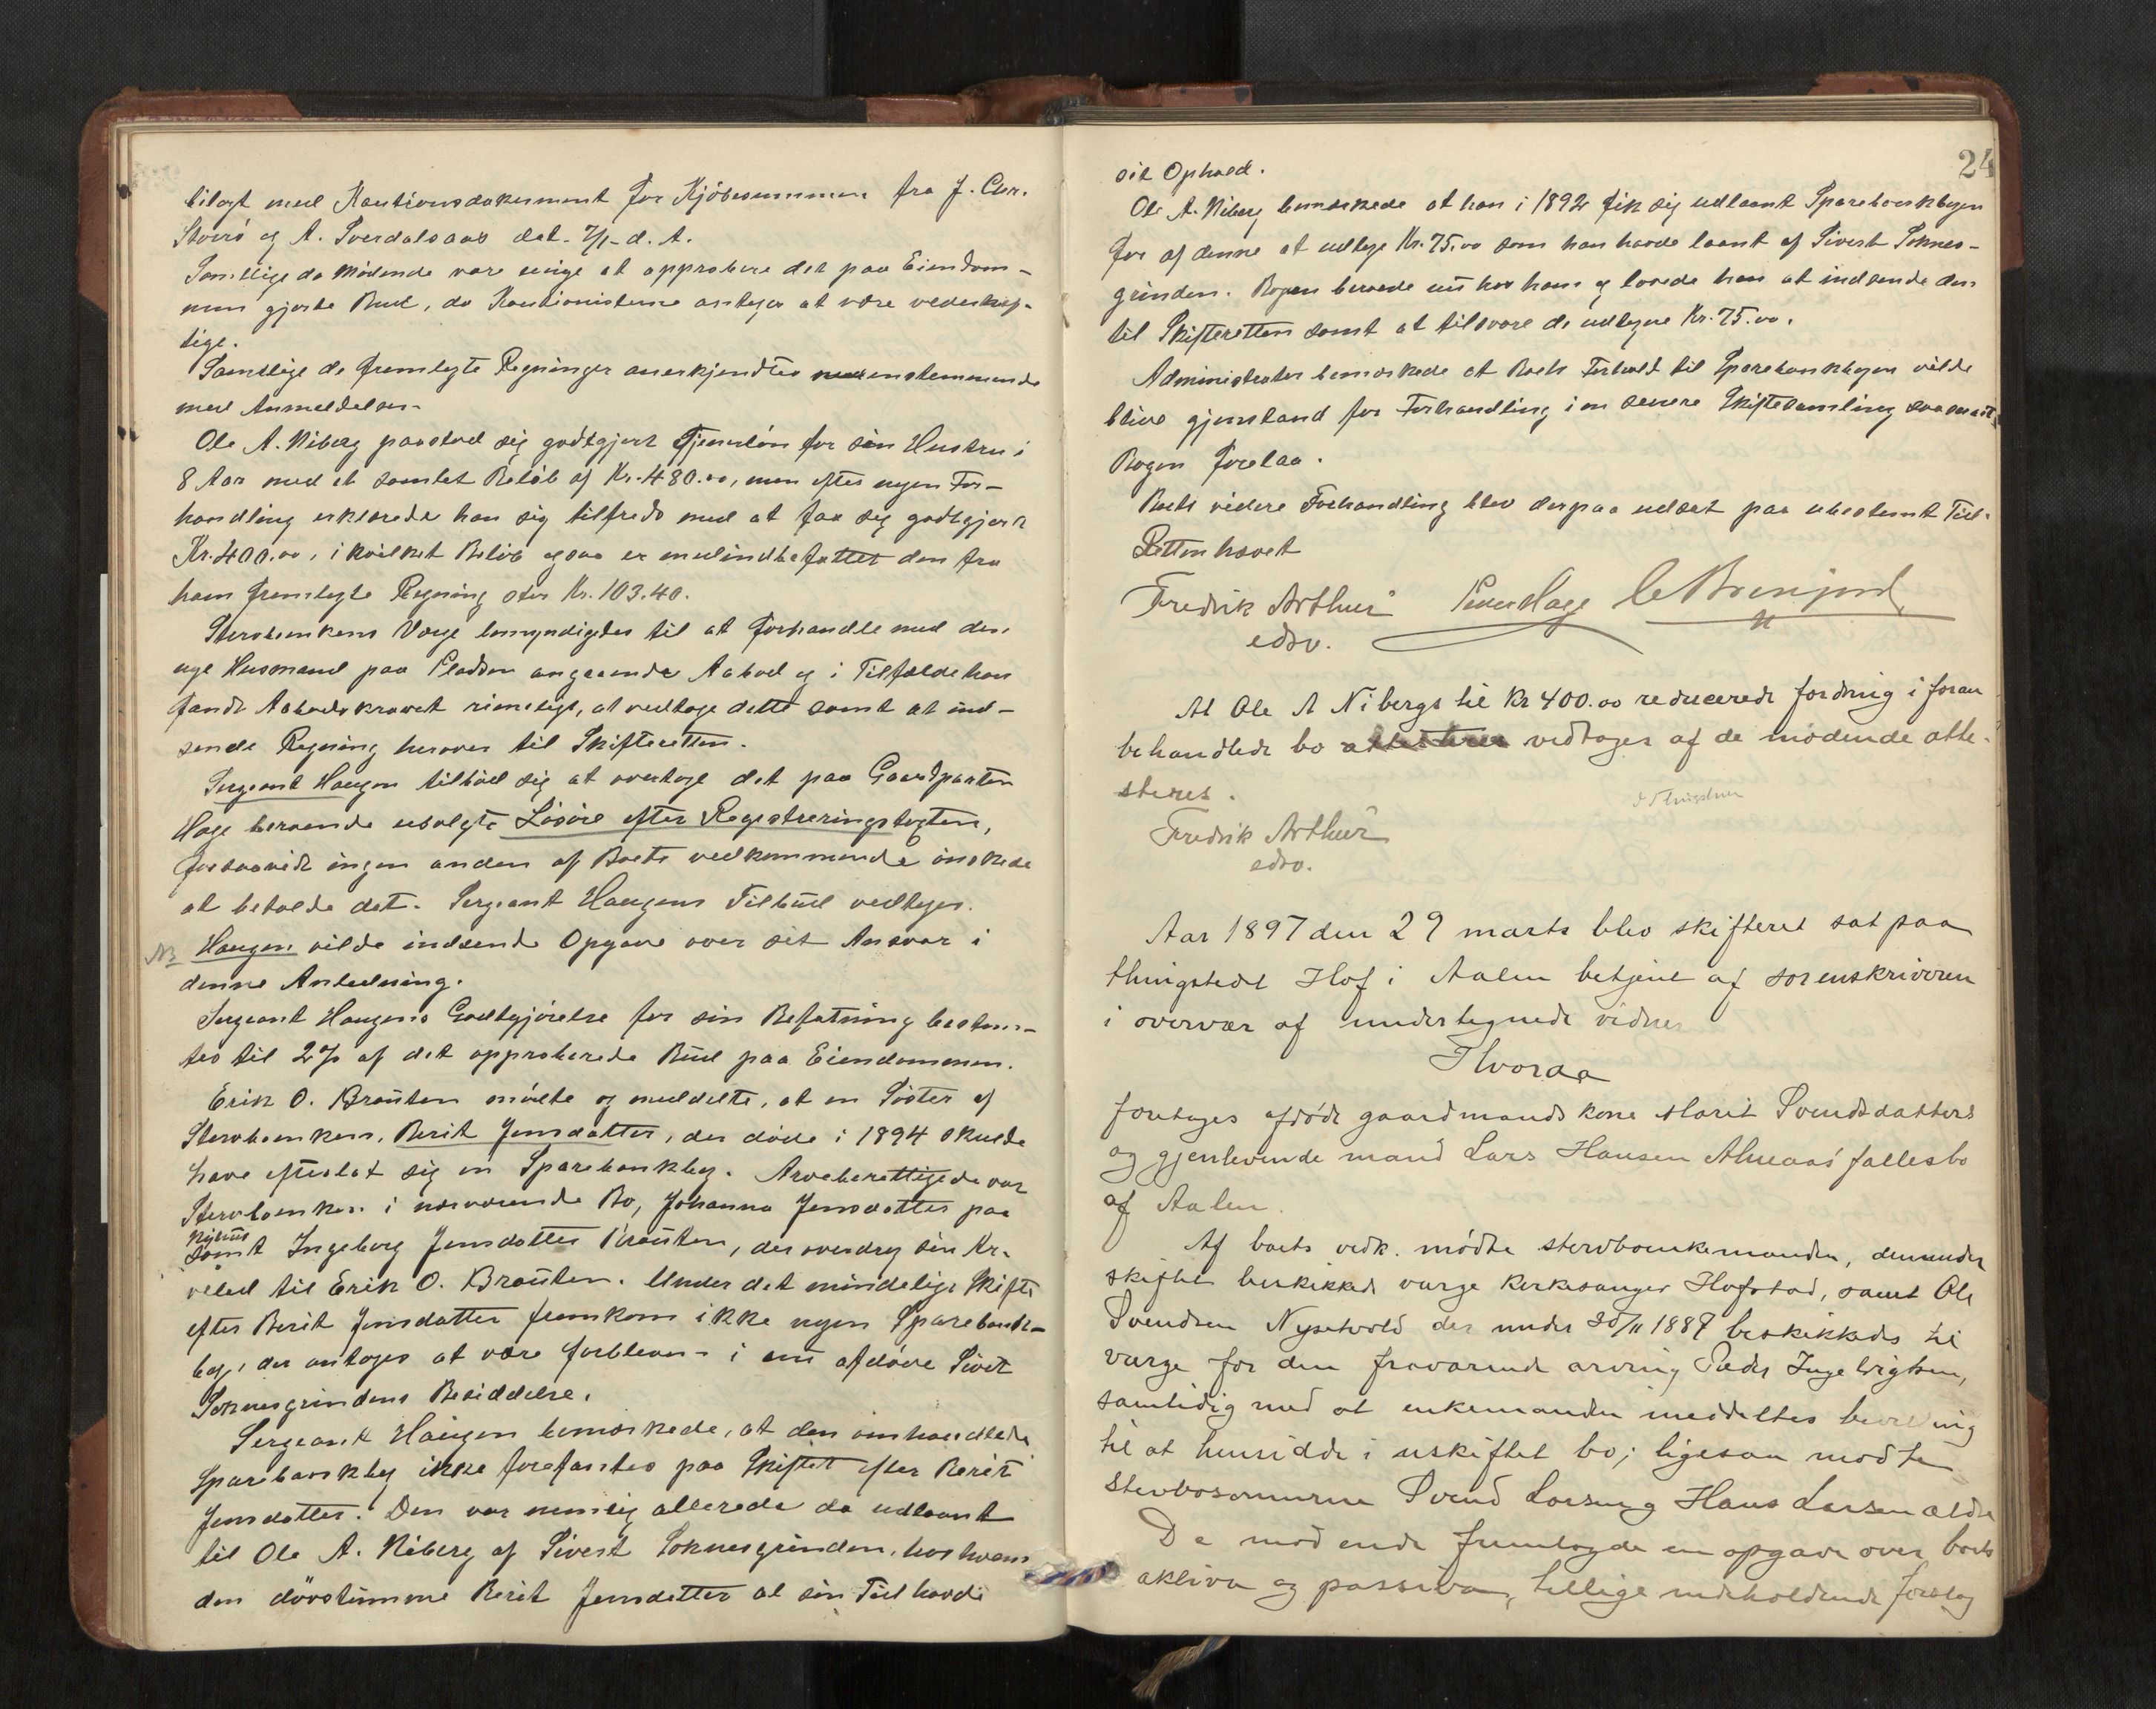 bilagt med Kautionsdokument for Kjöbesummen fra J. Chr.
Storrö og A. Sverdalsaas dat. 7/1 d. A.
Samtlige de Mödende vare enige at approbere det paa Eiendom-
men gjorte Bud, da Kautionisterne antages at være vederhef-
tige.
Samtlige de fremlagte Regninger anerkjendtes overensstemmende
med Anmeldelsen.
Ole A. Niberg paastod sig godtgjort Tjenerlön for sin Hustru i
8 Aar med et samlet Belöb af Kr. 480.00, men efter nogen For-
handling erklærede han sig tilfreds med at faa sig godtgjort
Kr. 400.00, i hvilket Belöb ogsaa er medindbefattet den fra
ham fremlagte Regning stor Kr. 103.40.
Stervbenkens Værge bemyndigedes til at forhandle med den
nye Husmand paa Pladsen angaaende Aabod og i Tilfælde han
fandt Aabodskravet rimeligt, at vedtage dette samt at ind-
sende Regning herover til Skifteretten.
Sergeant Haugen tilböd sig at overtage det paa Gaardparten
Hage beroende usolgte Lösöre efter Registreringstagten,
forsaavidt ingen anden af Boets vedkommende önskede
at beholde det. Sergeant Haugens Tilbud vedtages.
NB Haugen vilde indsende Opgave over sit Ansvar i
denne Anledning.
Sergeant Haugens Godtgjörelse for sin Befatning bestem-
tes til 2% af det approberede Bud paa Eiendommen.
Erik O. Brauten mödte og meddelte, at en Söster af
Stervbenken, Berit Jensdatter, der döde i 1894 skulde
have efterlat sig en Sparebankbog. Arveberettigede var
Stervbenken i nærværende Bo, Johanna Jensdatter paa
Nyhus
samt Ingeborg Jensdatter Brauten, der overdrog sin Ar-
velod til Erik O. Brauten. Under det mindelige Skifte
efter Berit Jensdatter fremkom ikke nogen Sparebank-
bog, der antoges at være forbleven i nu afdöde Sivert
Soknesgrindens Besiddelse.
Sergeant Haugen bemærkede, at den omhandlede
Sparebankbog ikke forefantes paa Skiftet efter Berit
Jensdatter. Den var nemlig allerede da udlaant
til Ole A. Niberg af Sivert Soknesgrinden, hos hvem
den dövstumme Berit Jensdatter al sin Tid havde
24
sit Ophold.
Ole A. Niberg bemærkede at han i 1892 fik sig udlaant Sparebankbogen
for af denne at udtage Kr. 75.00 som han havde laant af Sivert Soknes-
grinden. Bogen beroede nu hos ham og lovede han at indsende den
til Skifteretten samt at tilsvare de udtagne Kr. 75.00.
Administrator bemærkede at Boets Forhold til Sparebankbogen vilde
blive gjenstand for Forhandling i en senere Skiftesamling saasnart
Bogen forelaa.
Boets videre Forhandling blev derpaa udsat paa ubestemt Tid.
Retten hævet
Fredrik Arthur
edsv.
At Ole A Nibergs til Kr 400.00 reducerede fordring i foran
behandlede bo vedtages af de mödende atte-
steres.
Fredrik Arthur
edsv.
Aar 1897 den 29 marts blev skifteret sat paa
thingstedet Hof i Aalen betjent af sorenskriveren
i overvær af undertegnede vidner
Hvoraa
foretages afdöde gaardmandskone Marit Svendsdatters
og gjenlevende mand Lars Hansen Almaas' fællesbo
af Aalen.
Af boets vedk. mödte stervboenkemanden, den under
skiftet beskikkede værge kirkesanger Hofstad, samt Ole
Svendsen Nysetvold der under 25/11 1887 beskikkedes til
værge for den fraværende arving Peder Ingebrigtsen,
samtidig med at enkemanden meddeltes bevilling
til at hensidde i uskiftet bo; ligesaa mødte
stervbosønnerne Svend Larsen og Hans Larsen ældre
De mødende fremlagde en opgave over boets
aktiva og passiva, tillige indeholdende forslag